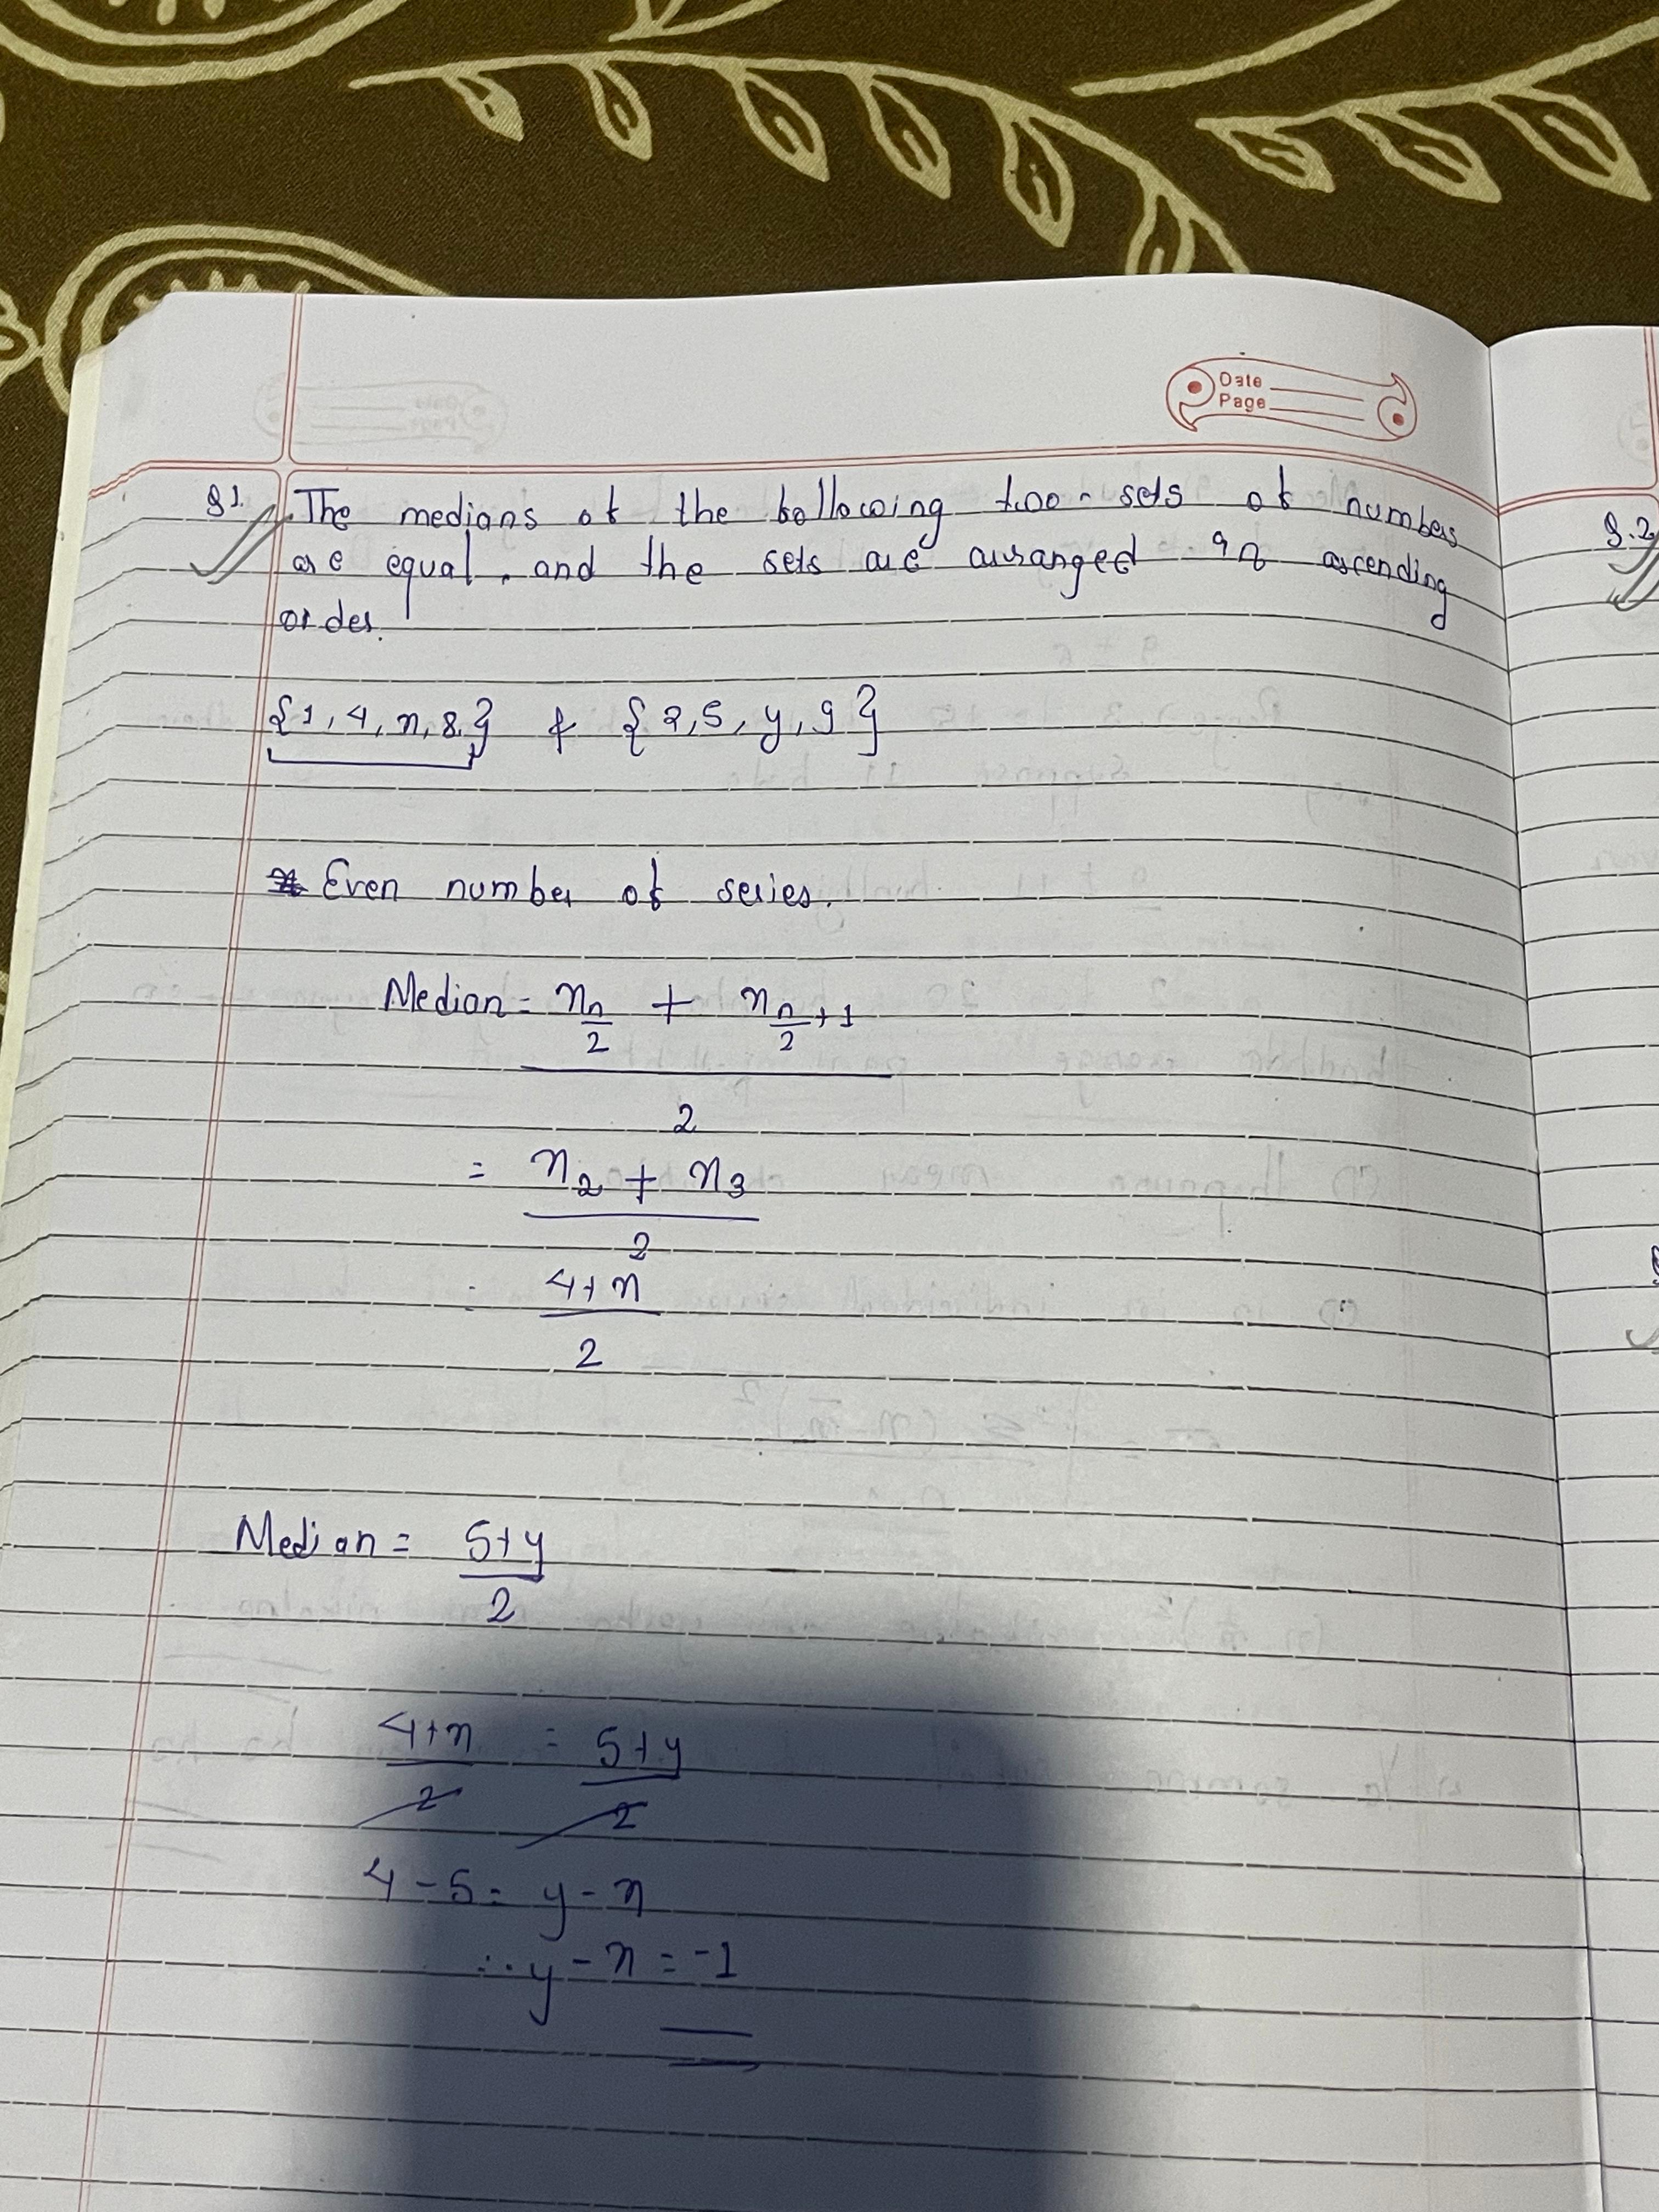 Date
Page
Q1. The medians of the following two-sets of numbers
are equal, and the sets are arranged in ascending
order.
{1, 4, x, 8} & {2, 5, y, 9}
Even number of series.
Median = x n/2 + x n/2 + 1
2
= x2 + x3
2
= 4+x
2
Median = 5+y
2
4+x = 5+y
2 2
4-5 = y-x
∴ y-x = -1
Q.2